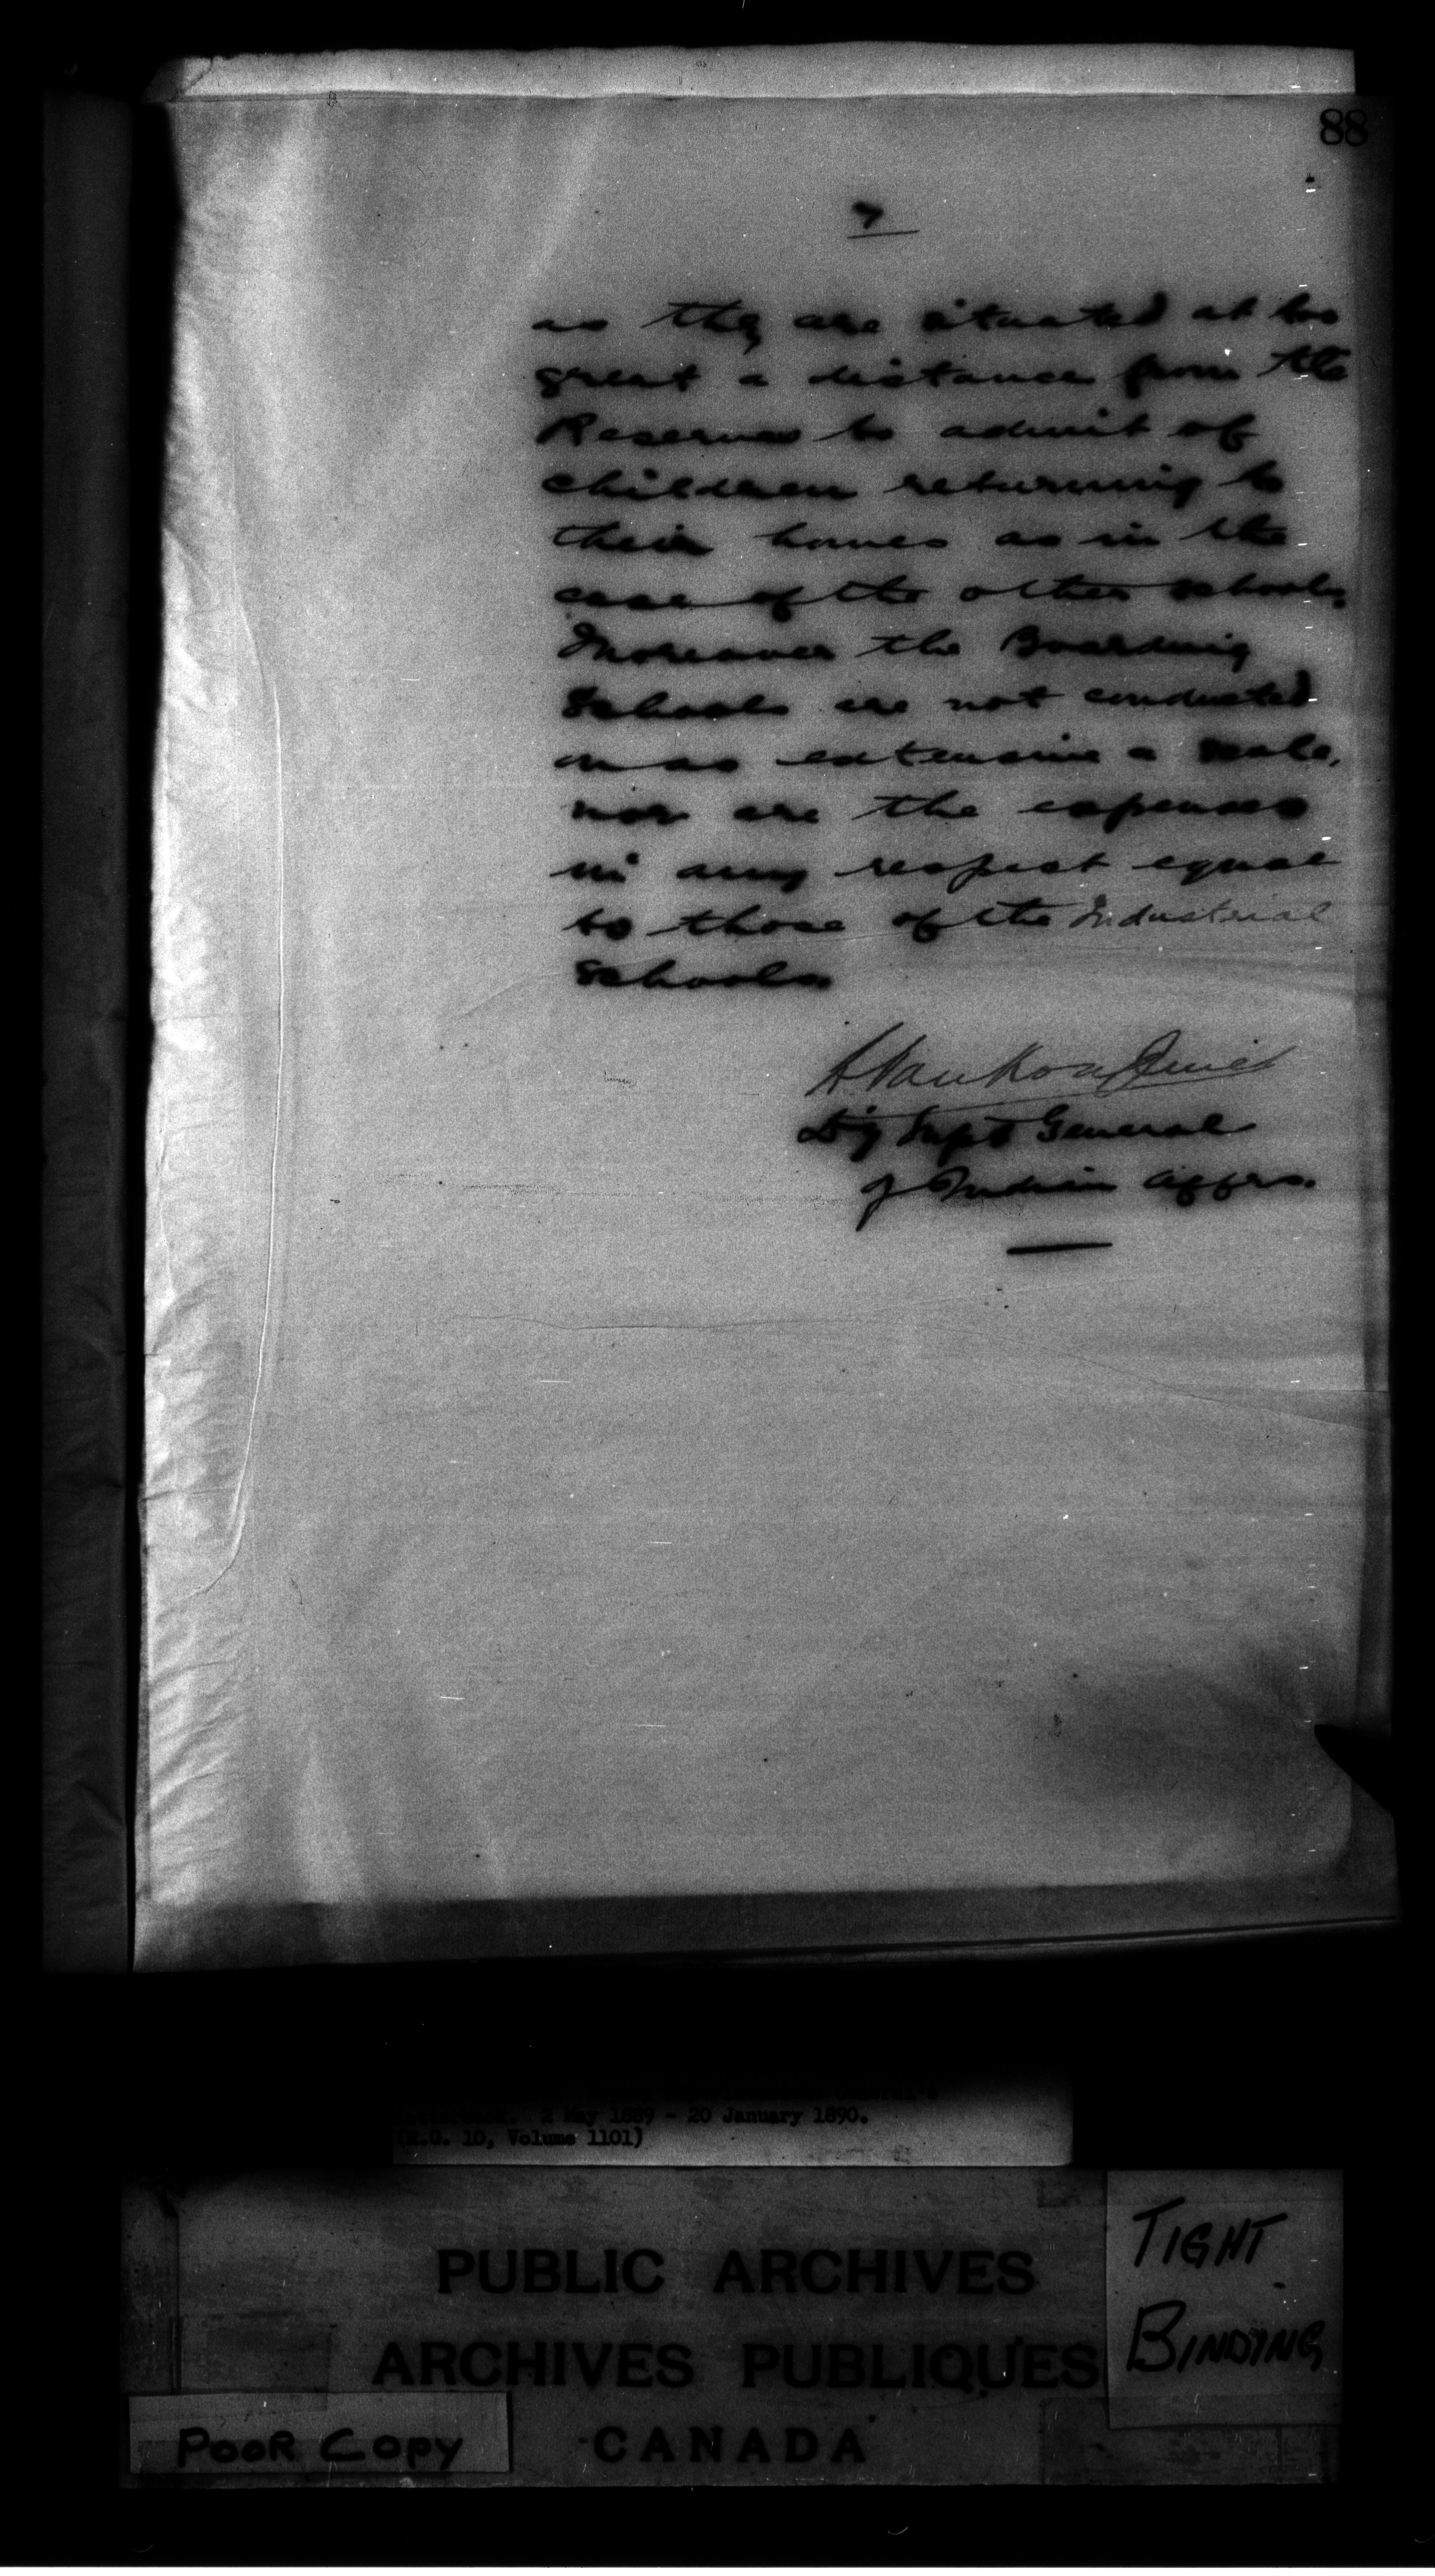 88
7
as they are situated at too
great a distance from the
Reserves to admit of
children returning to
their homes as in the
case of the other schools.
Moreover the Boarding
Schools are not conducted
on as extensive a scale,
nor are the expenses
in any respect equal
to those of the Industrial
schools.
L VanKoughnet
Dy Supt General
of Indian Affrs.
2 May 1889 - 20 January 1890.
(R.G. 10, Volume 1101)
PUBLIC ARCHIVES
ARCHIVES PUBLIQUES
CANADA
TIGHT
BINDING
POOR COPY